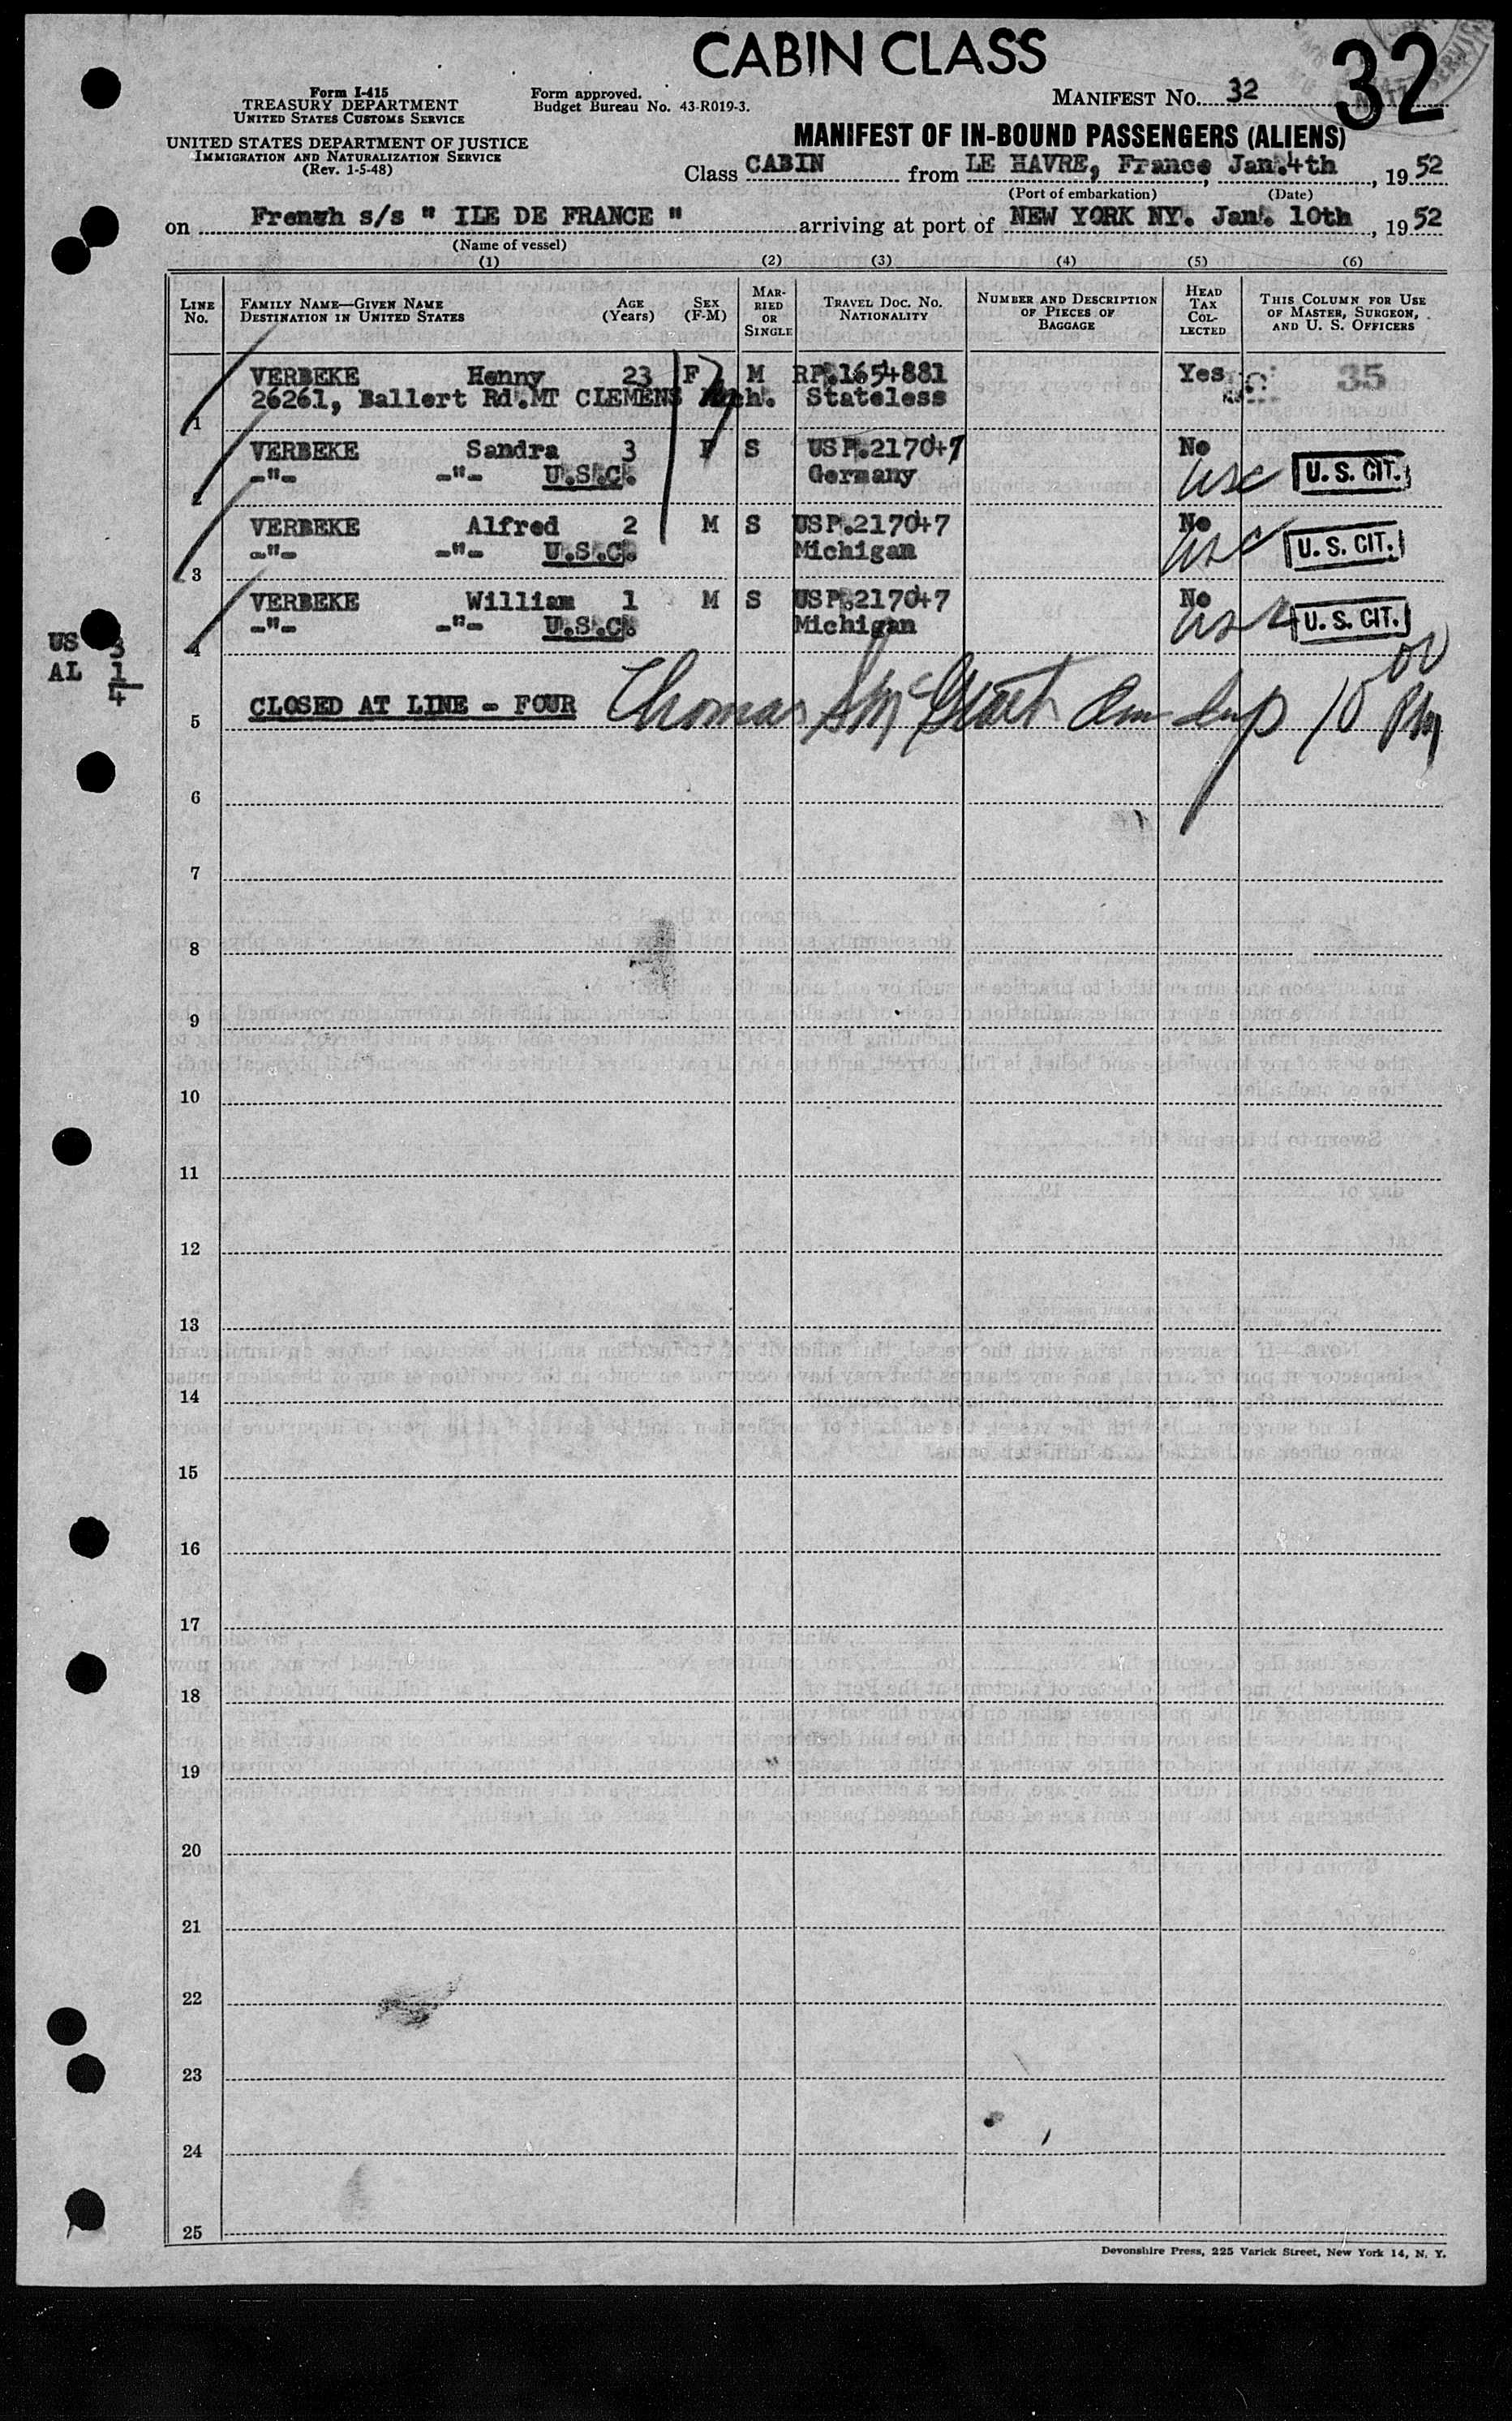 CABIN CLASS
32
Form I-415
TREASURY DEPARTMENT
UNITED STATES CUSTOMS SERVICE
UNITED STATES DEPARTMENT OF JUSTICE
IMMIGRATION AND NATURALIZATION SERVICE
(Rev. 1-5-48)
Form approved.
Budget Bureau No. 43-R019-3.
MANIFEST NO. 32
MANIFEST OF IN-BOUND PASSENGERS (ALIENS)
Class CABIN from LE HAVRE, France, Jan. 4th, 19 52
(Port of embarkation) (Date)
on French s/s " ILE DE FRANCE " arriving at port of NEW YORK NY. Jan. 10th, 19 52
(Name of vessel)
(1) (2) (3) (4) (5) (6)
LINE NO. FAMILY NAME—GIVEN NAME DESTINATION IN UNITED STATES AGE (Years) SEX (F-M) MARRIED OR SINGLE TRAVEL DOC. NO. NATIONALITY NUMBER AND DESCRIPTION OF PIECES OF BAGGAGE HEAD TAX COLLECTED THIS COLUMN FOR USE OF MASTER, SURGEON, AND U. S. OFFICERS
VERBEKE Henny 23 F M RP.1654881 Yes 35
1 26261, Ballert Rd.MT CLEMENS Mich. Stateless
VERBEKE Sandra 3 F S USP.217047 No
2 -"- -"- U.S.C. Germany usc U. S. CIT.
VERBEKE Alfred 2 M S USP.217047 No
3 -"- -"- U.S.C. Michigan usc U. S. CIT.
VERBEKE William 1 M S USP.217047 No
4 -"- -"- U.S.C. Michigan usc U. S. CIT.
US 3
AL 1
4
5 CLOSED AT LINE - FOUR Thomas 10 00 PM
6
7
8
9
10
11
12
13
14
15
16
17
18
19
20
21
22
23
24
25
Devonshire Press, 225 Varick Street, New York 14, N. Y.